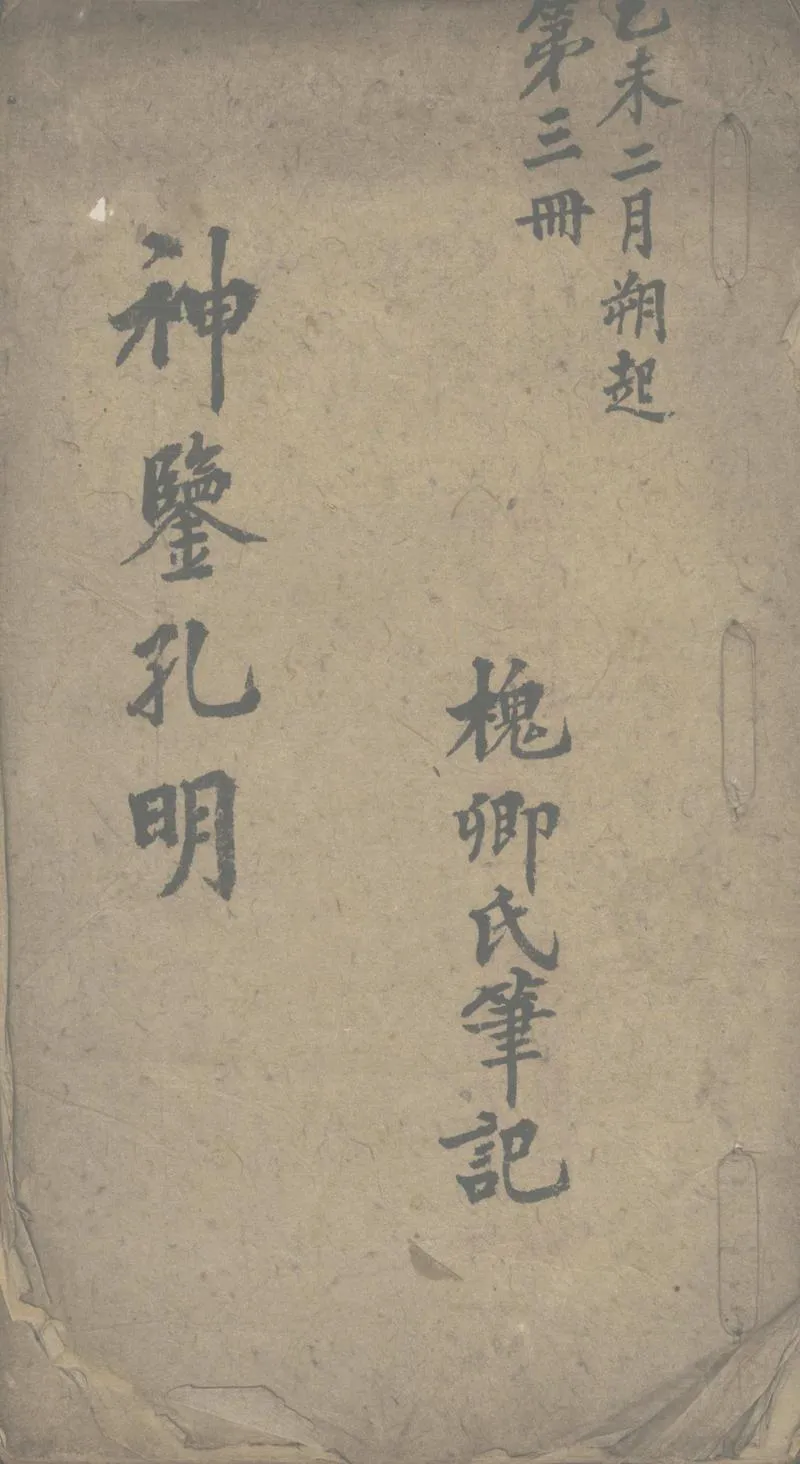 乙未二月朔起
第三冊
槐卿氏筆記
神鑒孔明